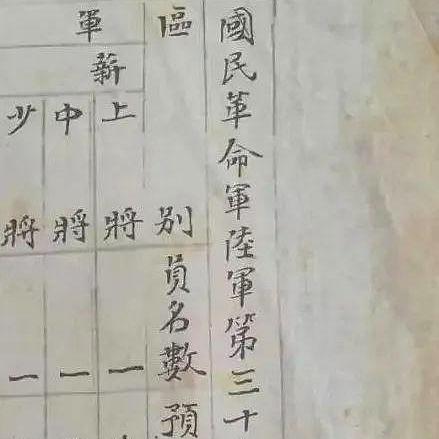 國民革命軍陸軍第三十
區別員名數預
軍薪
上將一
中將一
少將一